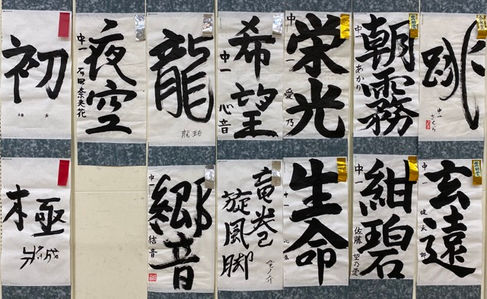 初
夜空
中一
石田奈央花
龍
希望
中一 心音
栄光
中一 愛乃
朝霧
中一 あかり
跳
極
響音
中一 信音
竜巻
旋風脚
生命
中一
紺碧
中一 佐藤
玄遠
中一 健太郎